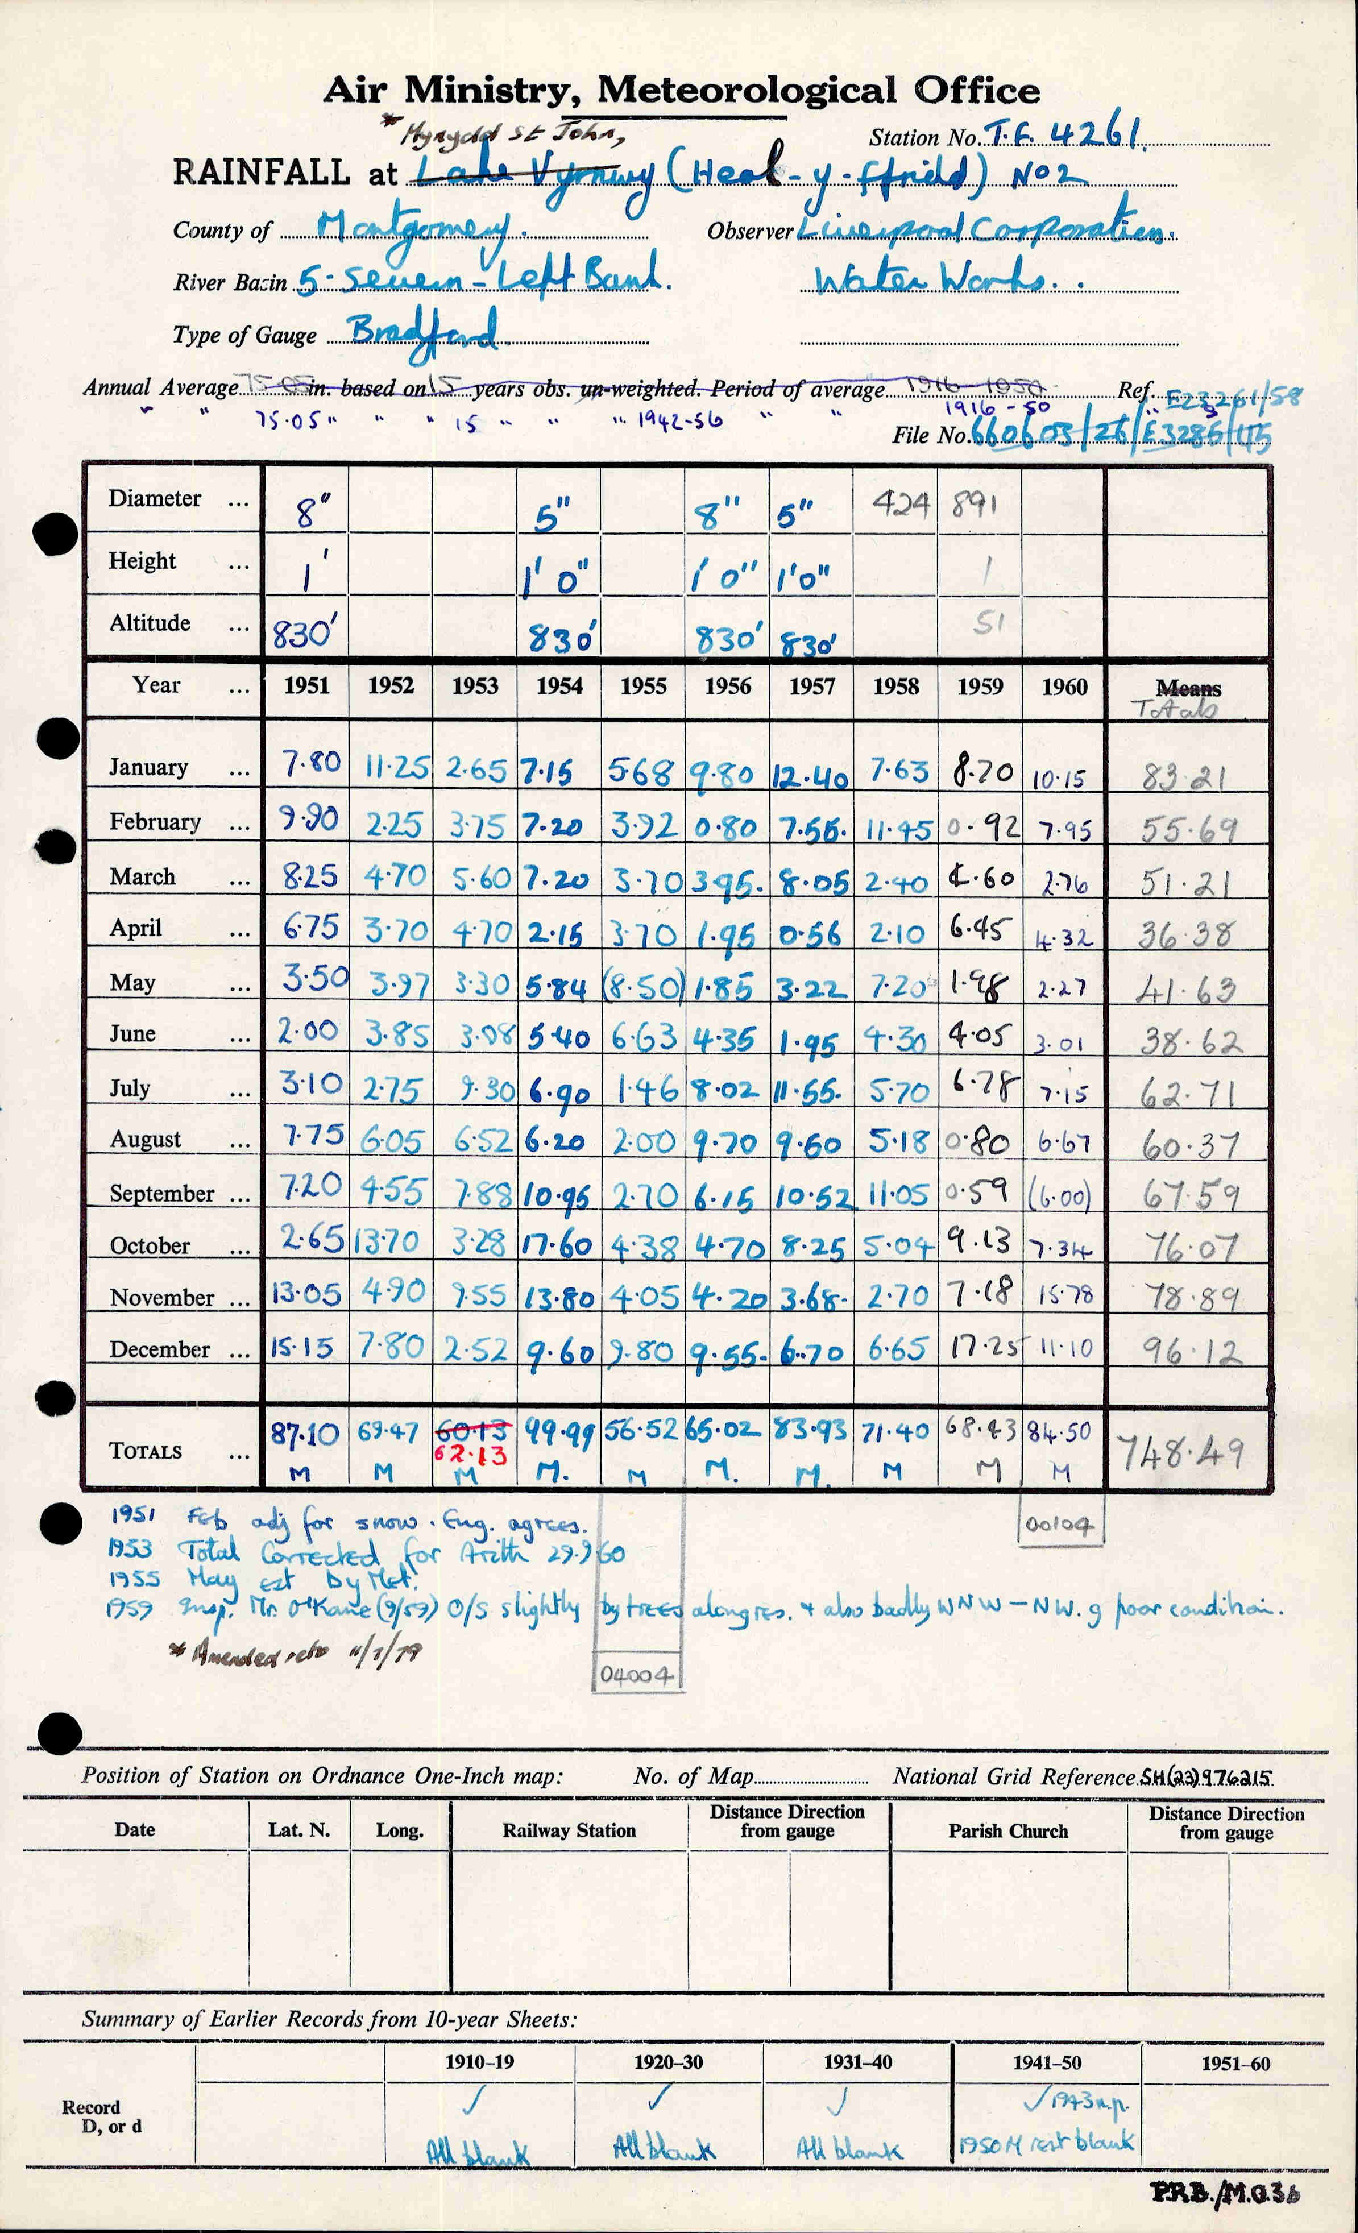 Air Ministry, Meteorological Office
* Mynydd St John,
Station No. T.F. 4261.
RAINFALL at Lake Vyrnwy (Heol-y-ffridd) No2
County of Montgomery. Observer Liverpool Corporation.
River Basin 5-Severn-Left Bank. Water Works..
Type of Gauge Bradford
Annual Average 75.05 in. based on 15 years obs. un-weighted. Period of average 1916-1950 Ref. E23261/58
" " 75.05 " " " 15 " " " 1942-56 " " 1916-50 "
File No. 660603/26/E3285/45
Diameter ... 8" 5" 8" 5" 424 891
Height ... 1' 1' 0" 1' 0" 1'0" 1
Altitude ... 830' 830' 830' 830' 51
Year ... 1951 1952 1953 1954 1955 1956 1957 1958 1959 1960 Means
Totals
January ... 7.80 11.25 2.65 7.15 5.68 9.80 12.40 7.63 8.70 10.15 83.21
February ... 9.90 2.25 3.75 7.20 3.92 0.80 7.55. 11.45 0.92 7.95 55.69
March ... 8.25 4.70 5.60 7.20 3.70 3.95. 8.05 2.40 4.60 2.76 51.21
April ... 6.75 3.70 4.70 2.15 3.70 1.95 0.56 2.10 6.45 4.32 36.38
May ... 3.50 3.97 3.30 5.84 (8.50) 1.85 3.22 7.20 1.98 2.27 41.63
June ... 2.00 3.85 3.08 5.40 6.63 4.35 1.95 4.30 4.05 3.01 38.62
July ... 3.10 2.75 9.30 6.90 1.46 8.02 11.55. 5.70 6.78 7.15 62.71
August ... 7.75 6.05 6.52 6.20 2.00 9.70 9.60 5.18 0.80 6.67 60.37
September ... 7.20 4.55 7.88 10.95 2.70 6.15 10.52 11.05 0.59 (6.00) 67.59
October ... 2.65 13.70 3.28 17.60 4.38 4.70 8.25 5.04 9.13 7.34 76.07
November ... 13.05 4.90 9.55 13.80 4.05 4.20 3.68. 2.70 7.18 15.78 78.89
December ... 15.15 7.80 2.52 9.60 9.80 9.55. 6.70 6.65 17.25 11.10 96.12
TOTALS ... 87.10 69.47 60.13 99.99 56.52 65.02 83.93 71.40 68.43 84.50 748.49
62.13
M M M M. M M. M. M M M
1951 Feb adj for snow. Eng. agrees.
00104
1953 Total Corrected for Arith 29.9.60
1955 May est by Met.
1959 Insp. Mr. O'Kane (9/59) O/S slightly by trees along res. + also badly WNW-NW. g poor condition.
* Amended 11/7/79
04004
Position of Station on Ordnance One-Inch map: No. of Map National Grid Reference SH(23)976215
Date Lat. N. Long. Railway Station Distance Direction from gauge Parish Church Distance Direction from gauge
Summary of Earlier Records from 10-year Sheets:
1910–19 1920–30 1931–40 1941–50 1951–60
Record
D, or d
✓ ✓ ✓ ✓ 1943 n.p.
All blank All blank All blank 1950 M rest blank
P.R.B./M.O.36